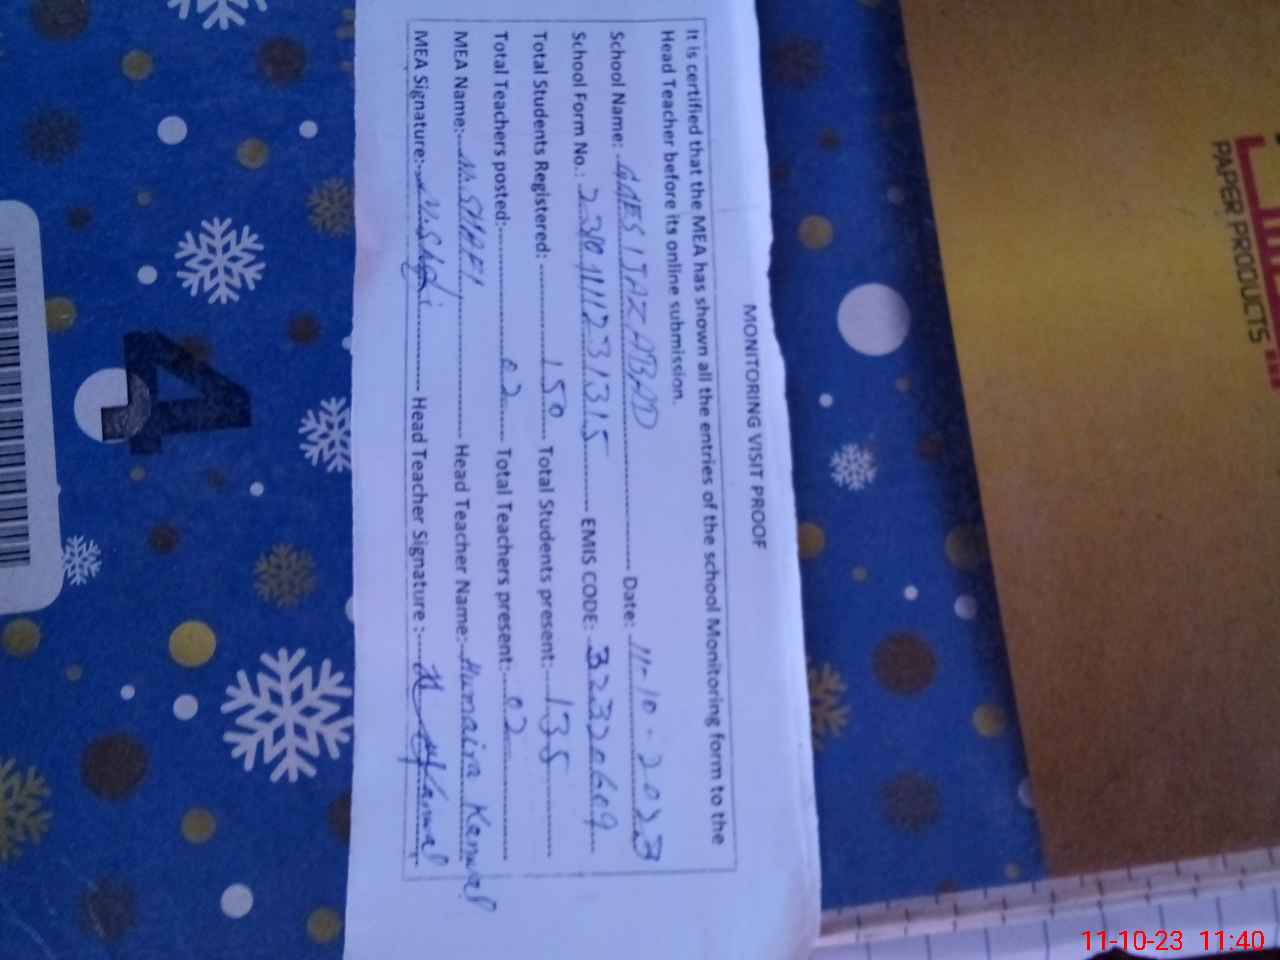 MONITORING VISIT PROOF
It is certified that the MEA has shown all the entries of the school Monitoring form to the
Head Teacher before its online submission.
School Name: GMES IJAZABAD Date: 11-10-2023
School Form No.: EMIS CODE: 32320609
Total Students Registered: 150 Total Students present: 135
Total Teachers posted: 02 Total Teachers present: 02
MEA Name: M. SHAFI Head Teacher Name: Humaira Kanwal
MEA Signature: M.Shafi Head Teacher Signature: Kanwal
4
PAPER PRODUCTS
11-10-23 11:40